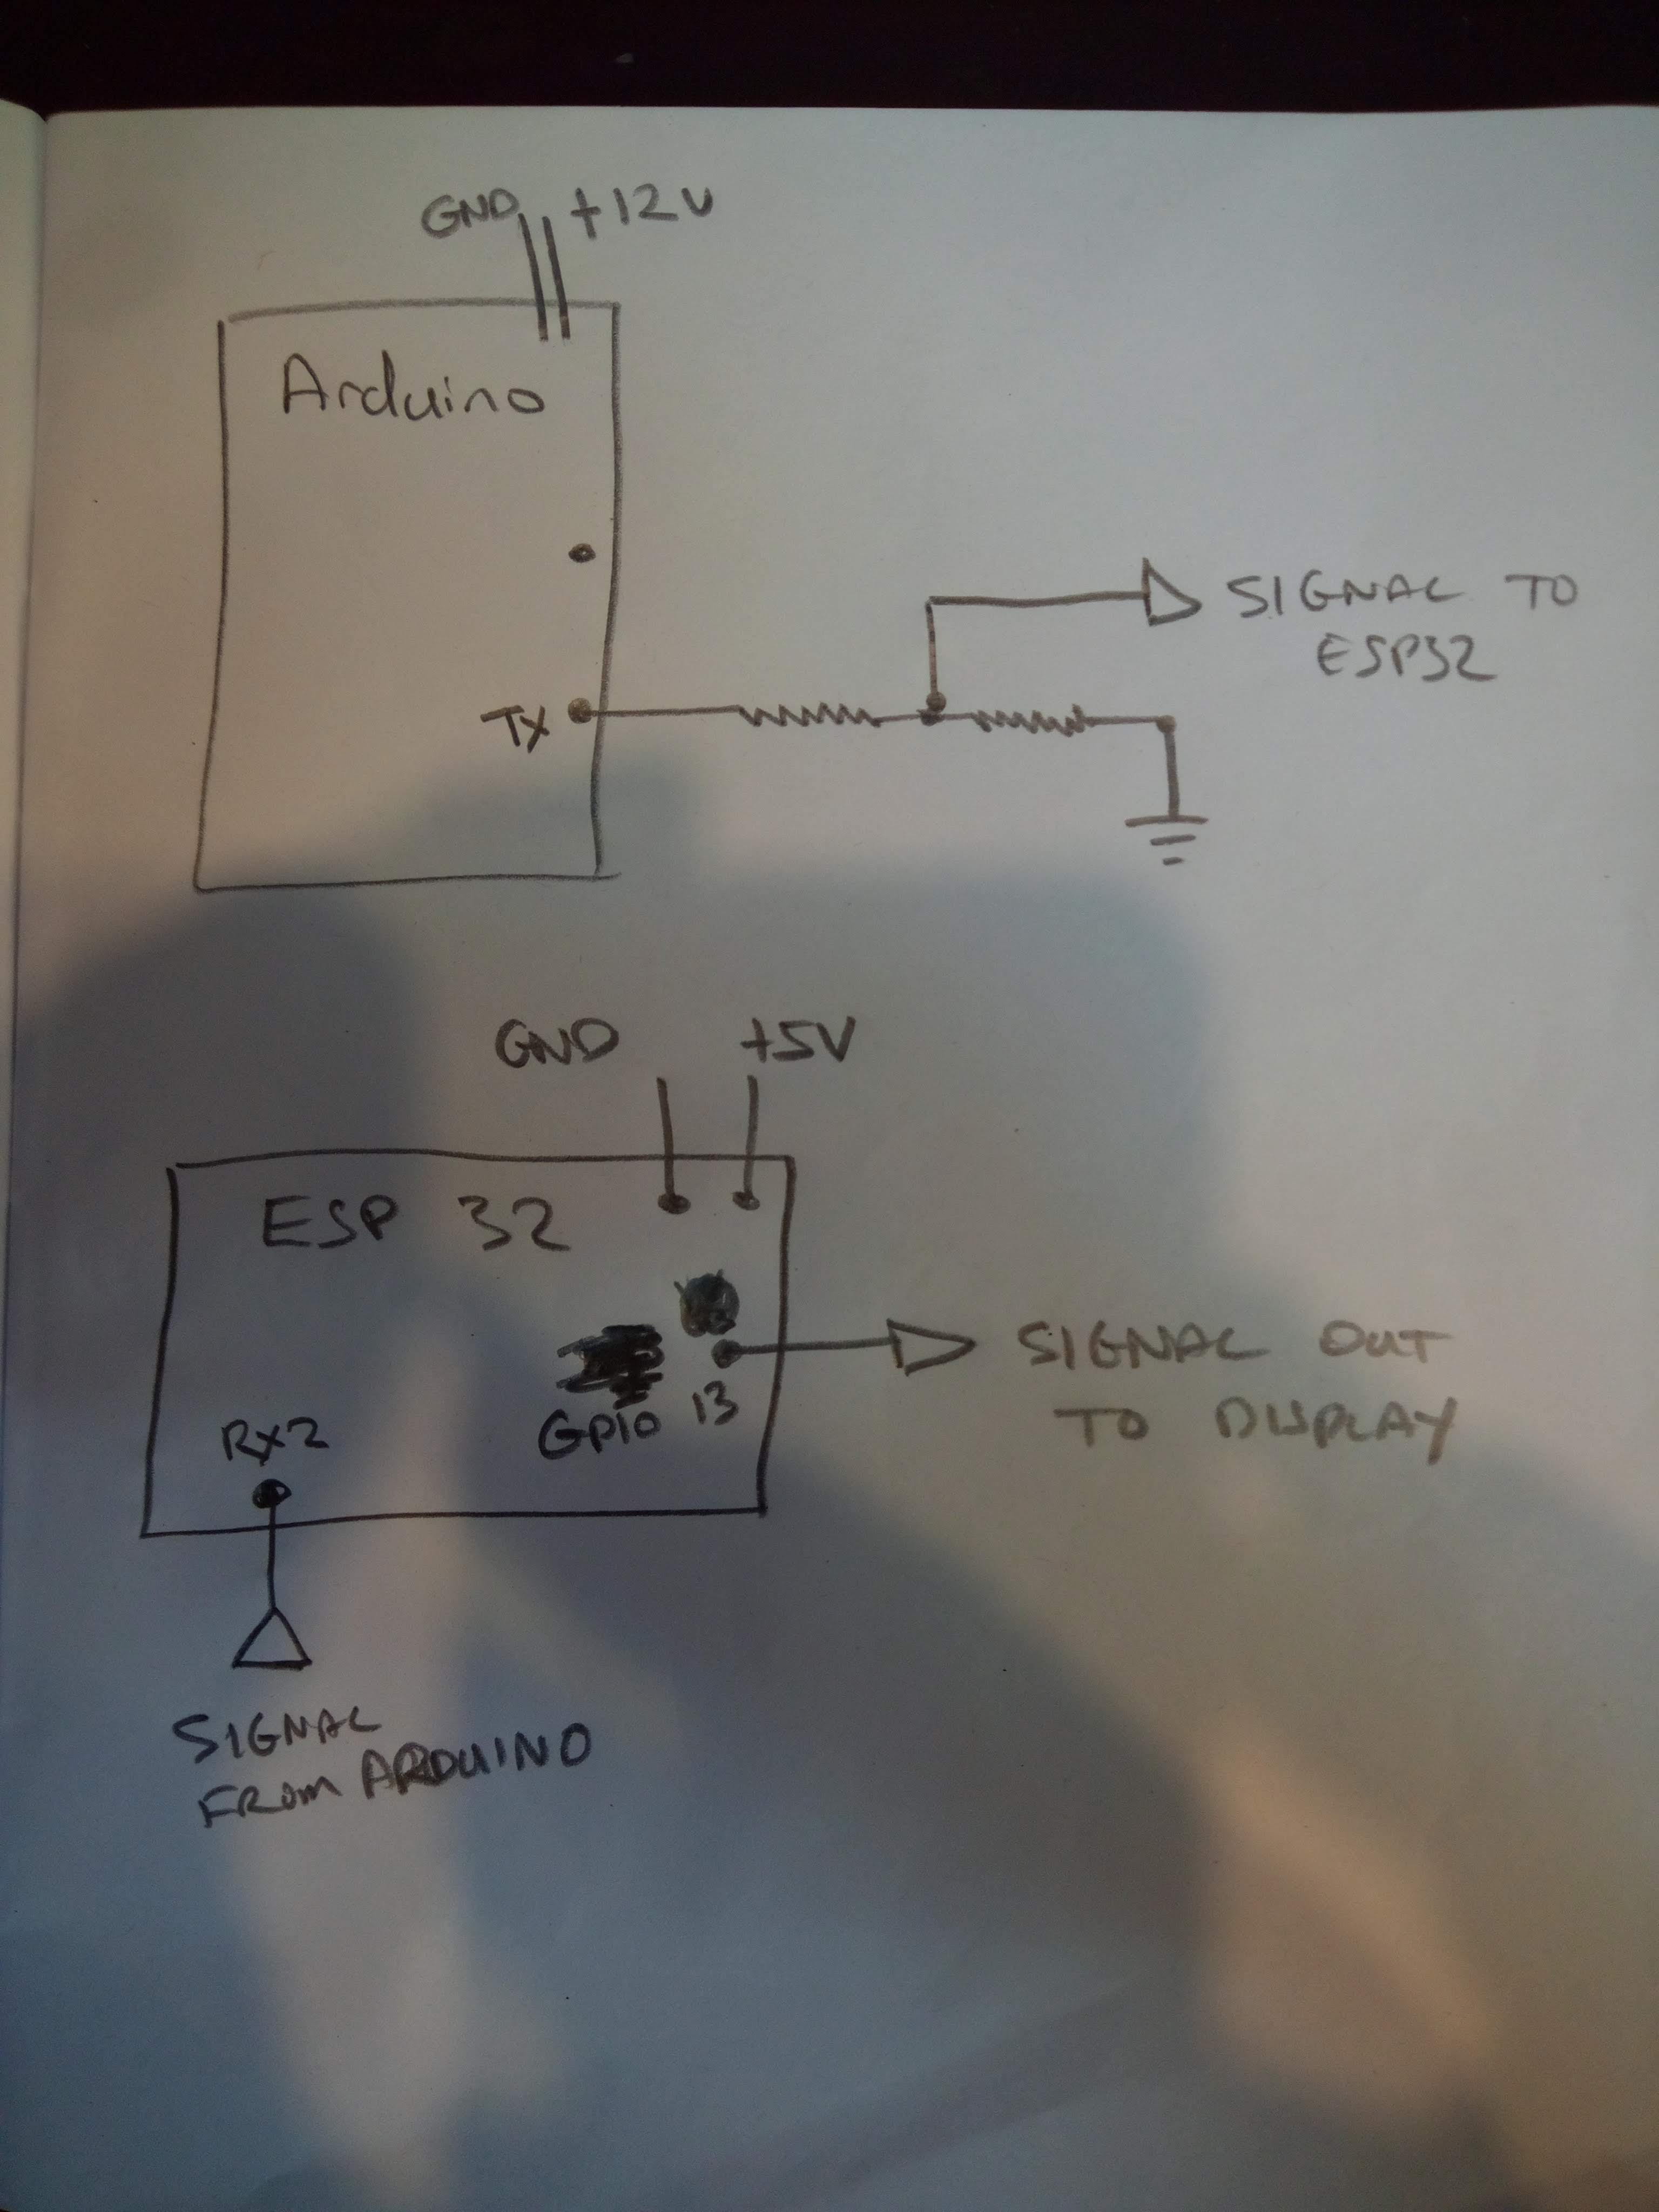 GND +12V
Arduino
SIGNAL TO
ESP32
TX
GND +5V
ESP 32
SIGNAL OUT
GPIO 13
TO DISPLAY
RX2
SIGNAL
FROM ARDUINO